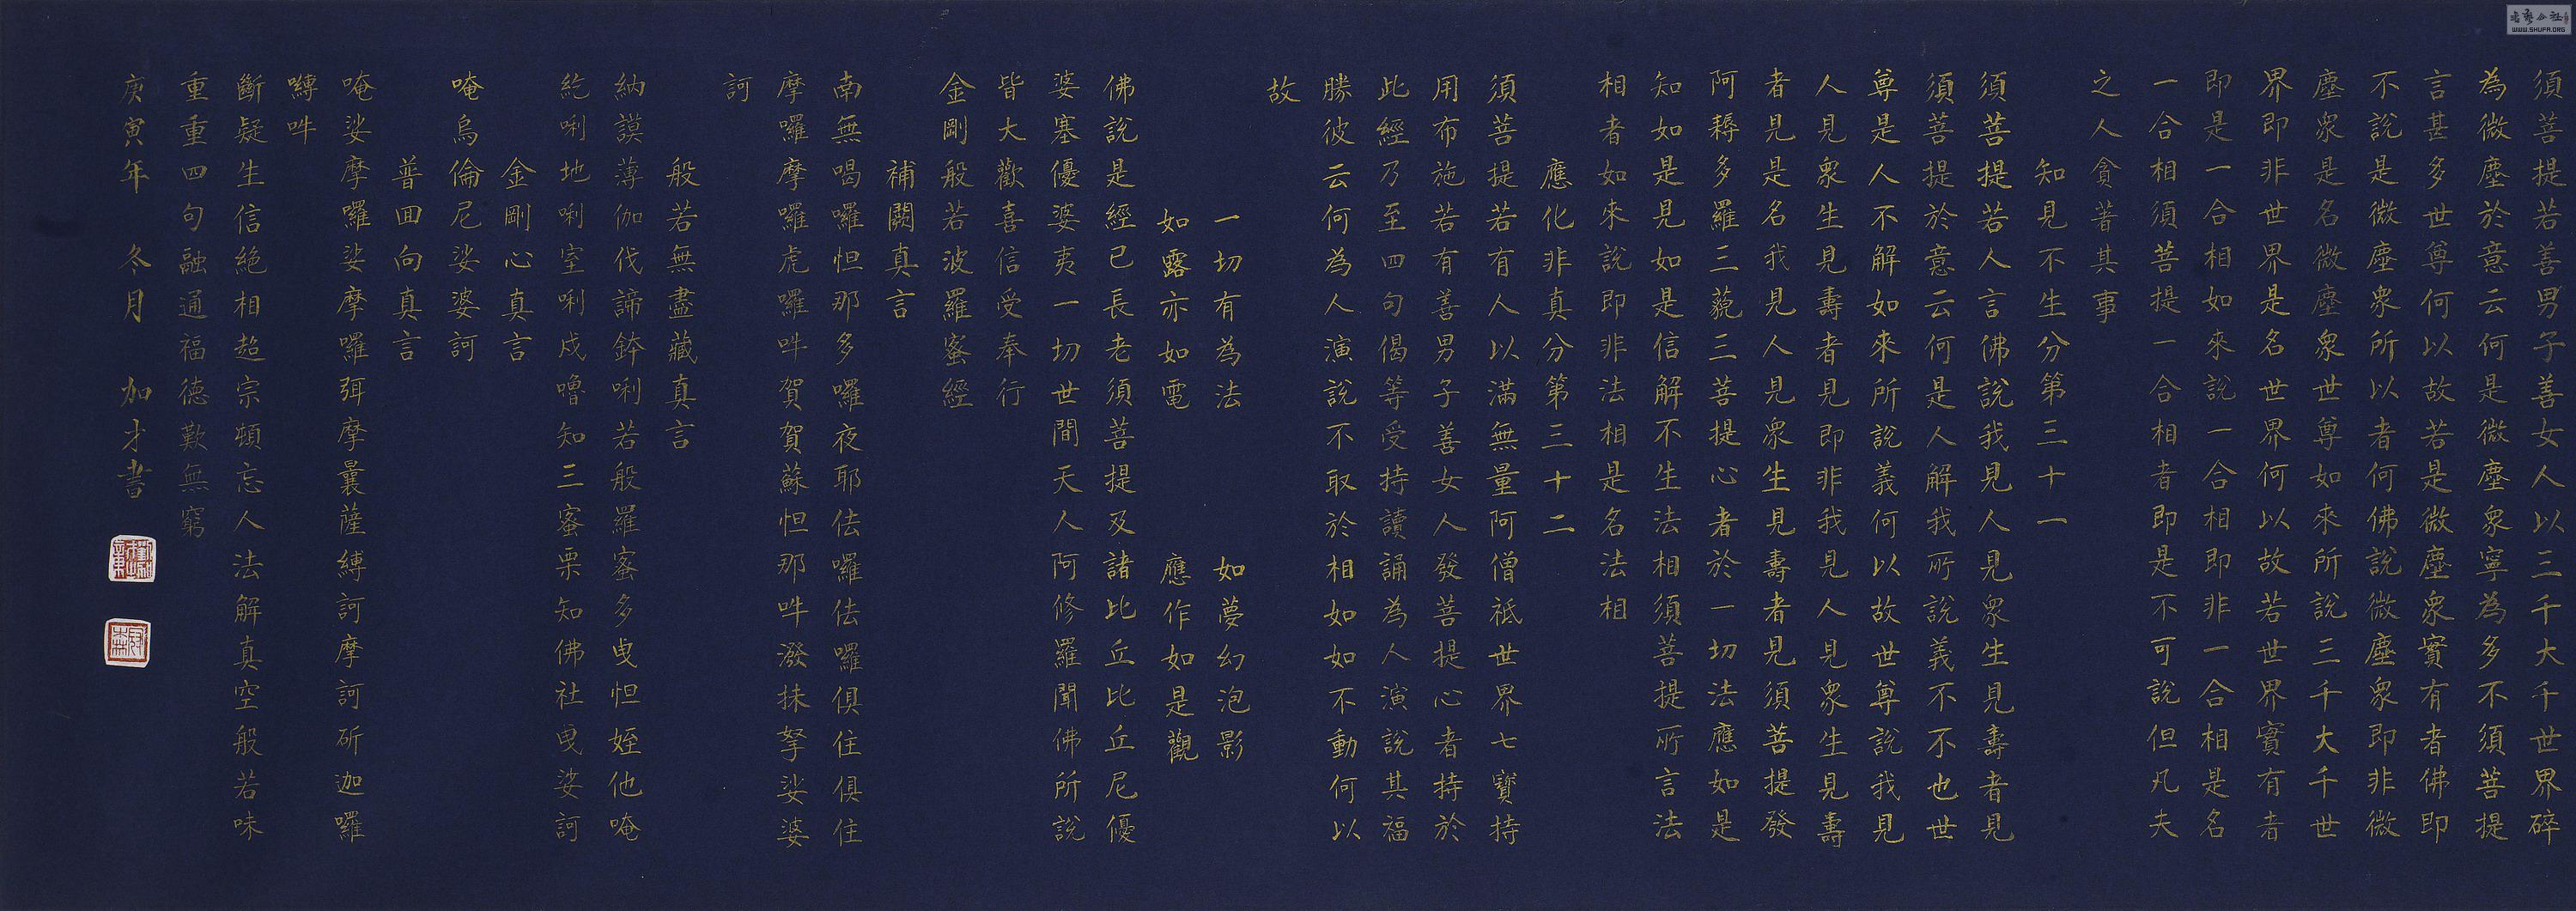 須菩提若善男子善女人以三千大千世界碎
為微塵於意云何是微塵眾寧為多不須菩提
言甚多世尊何以故若是微塵眾實有者佛即
不說是微塵眾所以者何佛說微塵眾即非微
塵眾是名微塵眾世尊如來所說三千大千世
界即非世界是名世界何以故若世界實有者
即是一合相如來說一合相即非一合相是名
一合相須菩提一合相者即是不可說但凡夫
之人貪著其事
知見不生分第三十一
須菩提若人言佛說我見人見眾生見壽者見
須菩提於意云何是人解我所說義不不也世
尊是人不解如來所說義何以故世尊說我見
人見眾生見壽者見即非我見人見眾生見壽
者見是名我見人見眾生見壽者見須菩提發
阿耨多羅三藐三菩提心者於一切法應如是
知如是見如是信解不生法相須菩提所言法
相者如來說即非法相是名法相
應化非真分第三十二
須菩提若有人以滿無量阿僧祇世界七寶持
用布施若有善男子善女人發菩提心者持於
此經乃至四句偈等受持讀誦為人演說其福
勝彼云何為人演說不取於相如如不動何以
故
一切有為法 如夢幻泡影
如露亦如電 應作如是觀
佛說是經已長老須菩提及諸比丘比丘尼優
婆塞優婆夷一切世間天人阿修羅聞佛所說
皆大歡喜信受奉行
金剛般若波羅蜜經
補闕真言
南無喝囉怛那多囉夜耶佉囉佉囉俱住俱住
摩囉摩囉虎囉吽賀賀蘇怛那吽潑抹拏娑婆
訶
般若無盡藏真言
納謨薄伽伐諦鉢唎若般羅蜜多曳怛姪他唵
紇唎地唎室唎戍嚕知三蜜栗知佛社曳娑訶
金剛心真言
唵烏倫尼娑婆訶
普回向真言
唵娑摩囉娑摩囉弭摩曩薩縛訶摩訶斫迦囉
嚩吽
斷疑生信絕相超宗頓忘人法解真空般若味
重重四句融通福德歎無窮
庚寅年 冬月 加才書
WWW.SHUFA.ORG